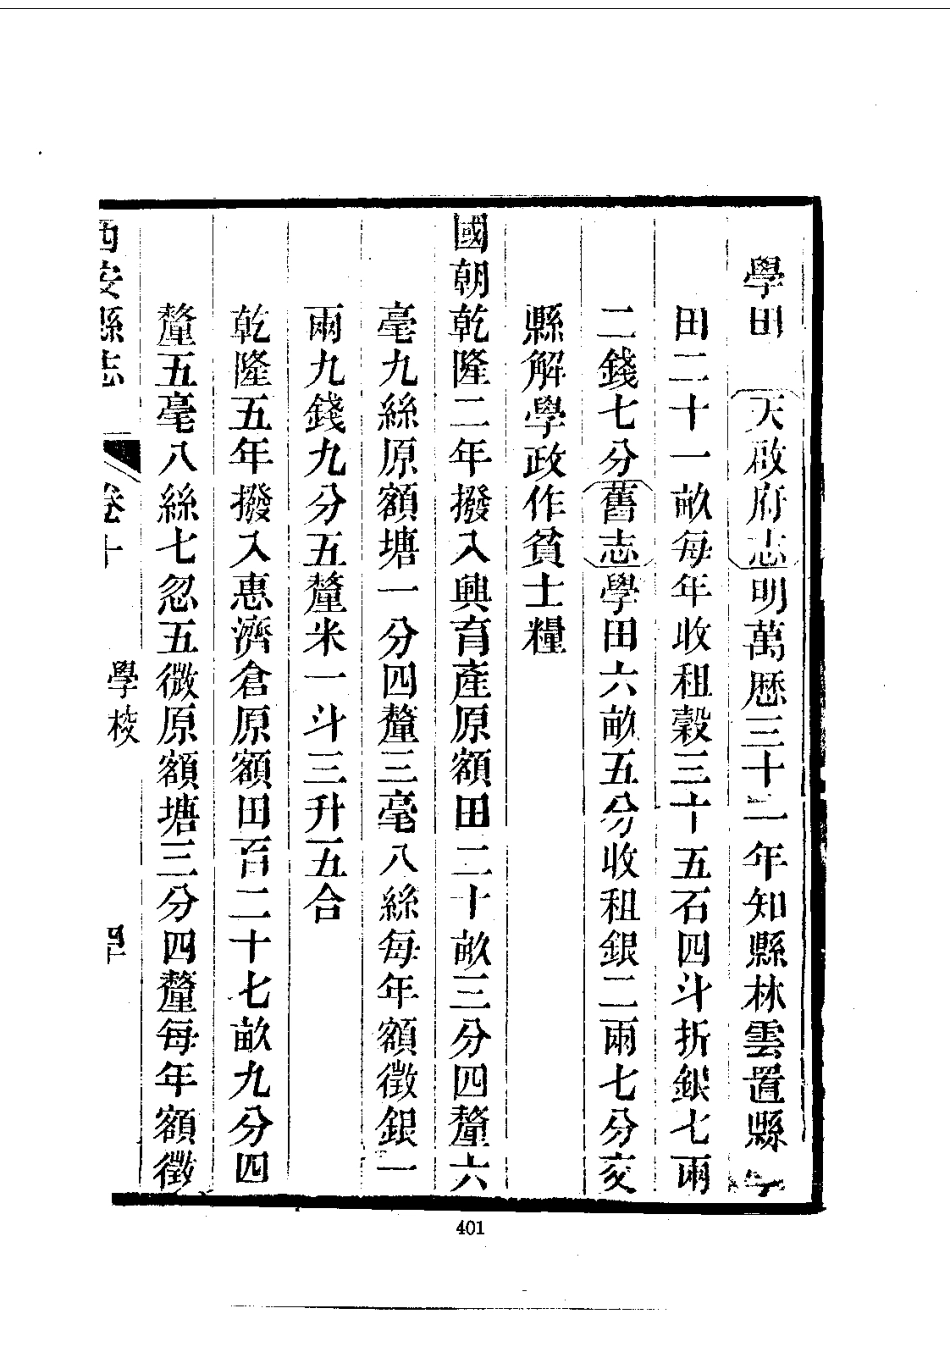 學田 天啟府志明萬歷三十二年知縣林雲置縣學
田二十一畝每年收租穀三十五石四斗折銀七兩
二錢七分舊志學田六畝五分收租銀二兩七分交
縣解學政作貧士糧
國朝乾隆二年撥入興育產原額田二十畝三分四釐六
毫九絲原額塘一分四釐三毫八絲每年額徵銀一
兩九錢九分五釐米一斗三升五合
乾隆五年撥入惠濟倉原額田百二十七畝九分四
釐五毫八絲七忽五微原額塘三分四釐每年額徵
西安縣志 卷十 學校
401